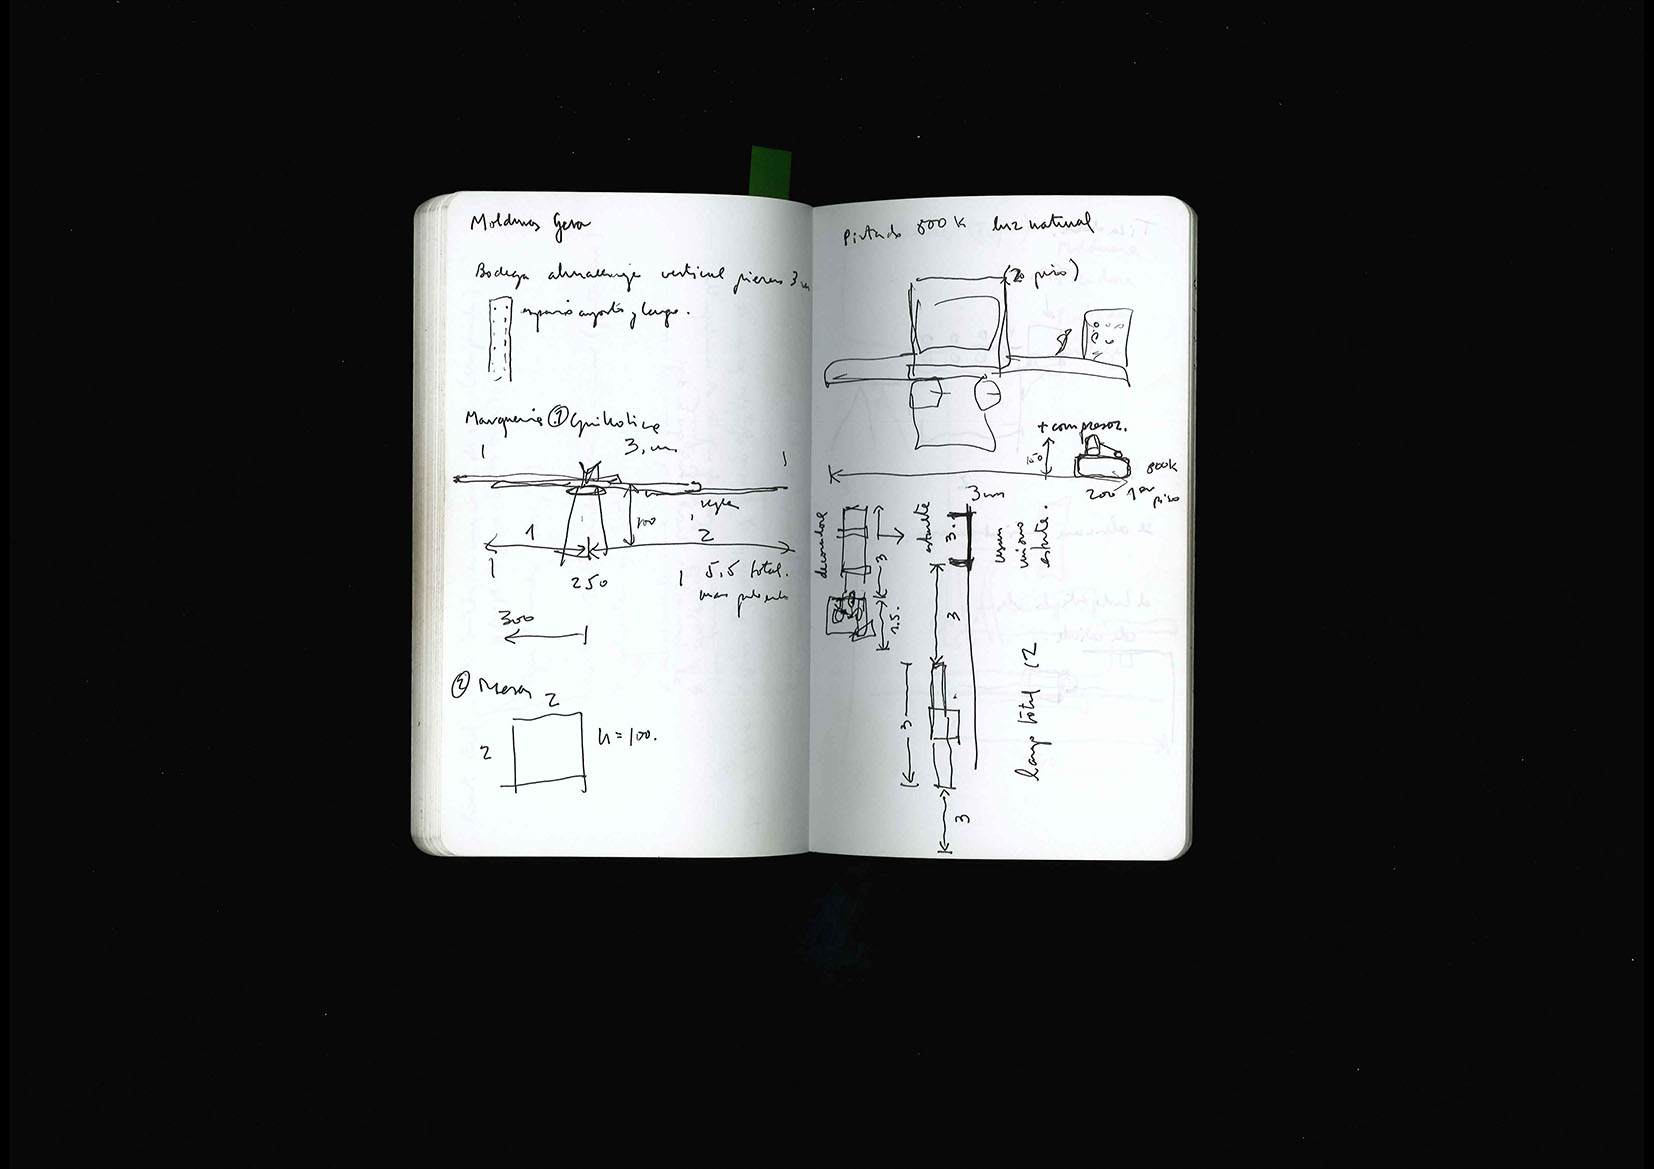 Molduras
Bodega almacenaje vertical piezas 3 m
espacio angosto y largo.
Marqueria ① Guillotina
3, m
1
1
regla
100
1
2
1
250
1
5,5 total.
300
② Mesas
2
2
h=100.
Pintado 800 K luz natural
(2o piso)
+ compresor.
150
800k
200
1er
piso
3 m
decoradora
3
1.5.
estante
3.
3
3
3
usan
mismo
estante.
largo total 12